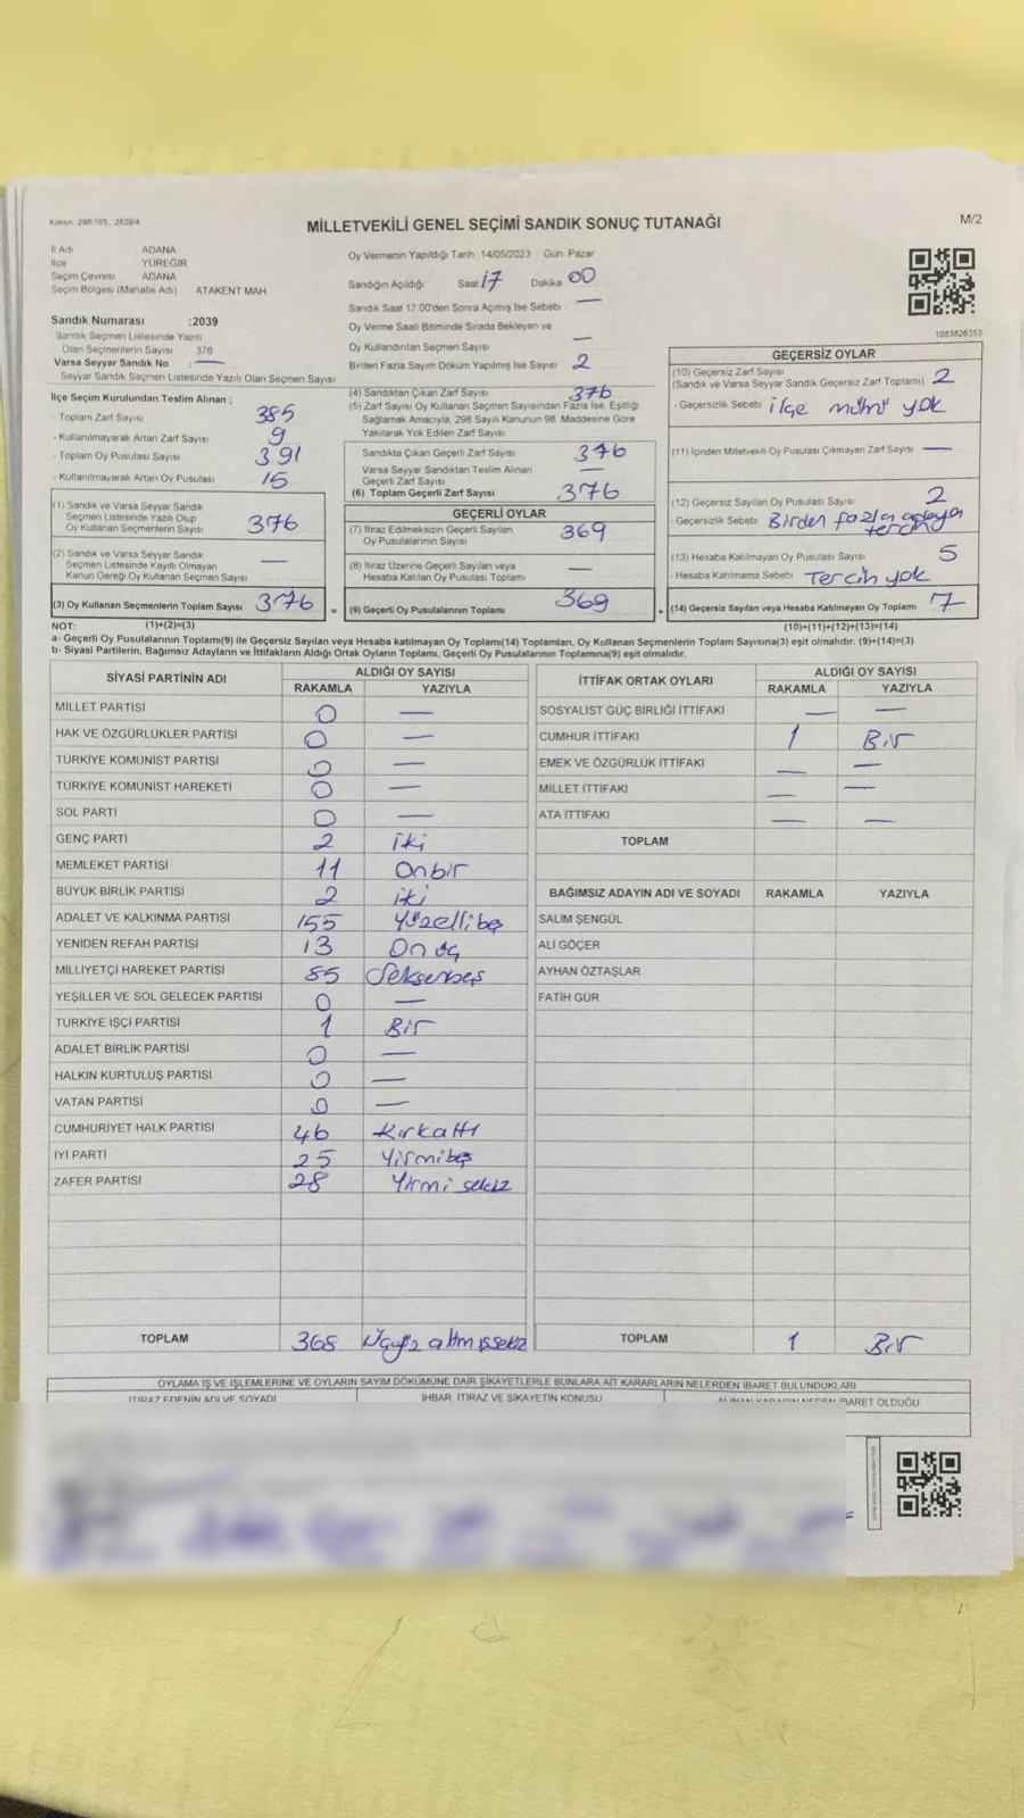 MİLLETVEKİLİ GENEL SEÇİMİ SANDIK SONUÇ TUTANAĞI
M/2
İl Adı ADANA
İlçe YÜREĞİR
Seçim Çevresi ADANA
Seçim Bölgesi (Mahalle Adı) ATAKENT MAH
Sandık Numarası :2039
Sandık Seçmen Listesinde Yazılı
Olan Seçmenlerin Sayısı 376
Varsa Seyyar Sandık No : —
Seyyar Sandık Seçmen Listesinde Yazılı Olan Seçmen Sayısı
İlçe Seçim Kurulundan Teslim Alınan ;
- Toplam Zarf Sayısı 385
- Kullanılmayarak Artan Zarf Sayısı 9
- Toplam Oy Pusulası Sayısı 391
- Kullanılmayarak Artan Oy Pusulası 15
(1) Sandık ve Varsa Seyyar Sandık
Seçmen Listesinde Yazılı Olup
Oy Kullanan Seçmenlerin Sayısı 376
(2) Sandık ve Varsa Seyyar Sandık
Seçmen Listesinde Kayıtlı Olmayan
Kanun Gereği Oy Kullanan Seçmen Sayısı —
(3) Oy Kullanan Seçmenlerin Toplam Sayısı 376
(1)+(2)=(3)
Oy Vermenin Yapıldığı Tarih 14/05/2023 Gün Pazar
Sandığın Açıldığı Saat 17 Dakika 00
Sandık Saat 17:00'den Sonra Açılmış İse Sebebi —
Oy Verme Saati Bitiminde Sırada Bekleyen ve
Oy Kullandırılan Seçmen Sayısı —
Birden Fazla Sayım Döküm Yapılmış İse Sayısı 2
(4) Sandıktan Çıkan Zarf Sayısı 376
(5) Zarf Sayısı Oy Kullanan Seçmen Sayısından Fazla İse, Eşitliği
Sağlamak Amacıyla, 298 Sayılı Kanunun 98. Maddesine Göre
Yakılarak Yok Edilen Zarf Sayısı
Sandıkta Çıkan Geçerli Zarf Sayısı 376
Varsa Seyyar Sandıktan Teslim Alınan
Geçerli Zarf Sayısı —
(6) Toplam Geçerli Zarf Sayısı 376
GEÇERLİ OYLAR
(7) İtiraz Edilmeksizin Geçerli Sayılan
Oy Pusulalarının Sayısı 369
(8) İtiraz Üzerine Geçerli Sayılan veya
Hesaba Katılan Oy Pusulası Toplamı —
(9) Geçerli Oy Pusulalarının Toplamı 369
1083826353
GEÇERSİZ OYLAR
(10) Geçersiz Zarf Sayısı
(Sandık ve Varsa Seyyar Sandık Geçersiz Zarf Toplamı) 2
- Geçersizlik Sebebi ilçe mührü yok
(11) İçinden Milletvekili Oy Pusulası Çıkmayan Zarf Sayısı —
(12) Geçersiz Sayılan Oy Pusulası Sayısı 2
Geçersizlik Sebebi Birden fazla
(13) Hesaba Katılmayan Oy Pusulası Sayısı 5
- Hesaba Katılmama Sebebi Tercih yok
(14) Geçersiz Sayılan veya Hesaba Katılmayan Oy Toplamı 7
(10)+(11)+(12)+(13)=(14)
NOT:
a- Geçerli Oy Pusulalarının Toplamı(9) ile Geçersiz Sayılan veya Hesaba katılmayan Oy Toplamı(14) Toplamları, Oy Kullanan Seçmenlerin Toplam Sayısına(3) eşit olmalıdır. (9)+(14)=(3)
b- Siyasi Partilerin, Bağımsız Adayların ve İttifakların Aldığı Ortak Oyların Toplamı, Geçerli Oy Pusulalarının Toplamına(9) eşit olmalıdır.
SİYASİ PARTİNİN ADI ALDIĞI OY SAYISI
RAKAMLA YAZIYLA
MİLLET PARTİSİ 0 —
HAK VE ÖZGÜRLÜKLER PARTİSİ 0 —
TÜRKİYE KOMÜNİST PARTİSİ 0 —
TÜRKİYE KOMÜNİST HAREKETİ 0 —
SOL PARTİ 0 —
GENÇ PARTİ 2 iki
MEMLEKET PARTİSİ 11 Onbir
BÜYÜK BİRLİK PARTİSİ 2 iki
ADALET VE KALKINMA PARTİSİ 155 Yüzellibeş
YENİDEN REFAH PARTİSİ 13 Onüç
MİLLİYETÇİ HAREKET PARTİSİ 85 Seksenbeş
YEŞİLLER VE SOL GELECEK PARTİSİ 0 —
TÜRKİYE İŞÇİ PARTİSİ 1 Bir
ADALET BİRLİK PARTİSİ 0 —
HALKIN KURTULUŞ PARTİSİ 0 —
VATAN PARTİSİ 0 —
CUMHURİYET HALK PARTİSİ 46 Kırkaltı
İYİ PARTİ 25 Yirmibeş
ZAFER PARTİSİ 28 Yirmi sekiz
TOPLAM 368 Üçyüz altmışsekiz
İTTİFAK ORTAK OYLARI ALDIĞI OY SAYISI
RAKAMLA YAZIYLA
SOSYALİST GÜÇ BİRLİĞİ İTTİFAKI — —
CUMHUR İTTİFAKI 1 Bir
EMEK VE ÖZGÜRLÜK İTTİFAKI — —
MİLLET İTTİFAKI — —
ATA İTTİFAKI — —
TOPLAM
BAĞIMSIZ ADAYIN ADI VE SOYADI RAKAMLA YAZIYLA
SALİM ŞENGÜL
ALİ GÖÇER
AYHAN ÖZTAŞLAR
FATİH GÜR
TOPLAM 1 Bir
OYLAMA İŞ VE İŞLEMLERİNE VE OYLARIN SAYIM DÖKÜMÜNE DAİR ŞİKAYETLERLE BUNLARA AİT KARARLARIN NELERDEN İBARET BULUNDUKLARI
İTİRAZ EDENİN ADI VE SOYADI İHBAR, İTİRAZ VE ŞİKAYETİN KONUSU İBARET OLDUĞU